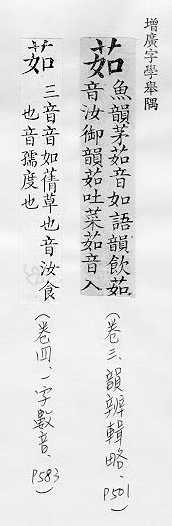 增廣字學舉隅
茹
魚韻茅茹音如語韻飲茹
音汝御韻茹吐菜茹音入
(卷三、韻辨輯略、P501)
茹
三音音如蒨草也音汝食
也音孺度也
(卷四、一字數音、P583)